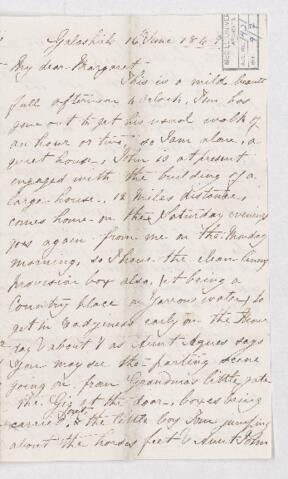 Galashiels 16th June 184
My dear Margaret
This is a mild beauti
full afternoon 4 oclock, Tom has
gone out to get his usual walk of
an hour or two, so I am alone, a
quiet house, John is at present
engaged with the building of a
large house. 12 Miles distance,
comes home on the Saturday evening
goes again from me on the Monday
morning, so I have the clean linen
provision box also, it being a
Country place on Yarrow water, to
get in readyness early on the Mon
day & about 8 as Aunt Agnes says
You may see the parting scene
going on from Grandmas little gate
the Gig at the door, boxes being
carried out, & the little boy Tom jumping
about the horses feet & Aunt John